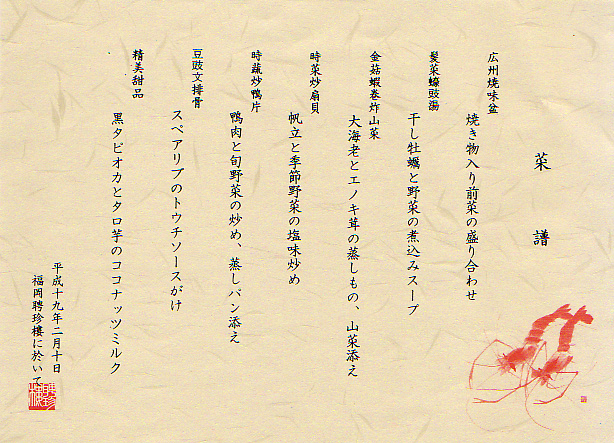 菜譜
広州焼味盆
焼き物入り前菜の盛り合わせ
髪菜蠔豉湯
干し牡蠣と野菜の煮込みスープ
金菇蝦巻炸山菜
大海老とエノキ茸の蒸しもの、山菜添え
時菜炒扇貝
帆立と季節野菜の塩味炒め
時蔬炒鴨片
鴨肉と旬野菜の炒め、蒸しパン添え
豆豉文排骨
スペアリブのトウチソースがけ
精美甜品
黒タピオカとタロ芋のココナッツミルク
平成十九年二月十日
福岡聘珍樓に於いて